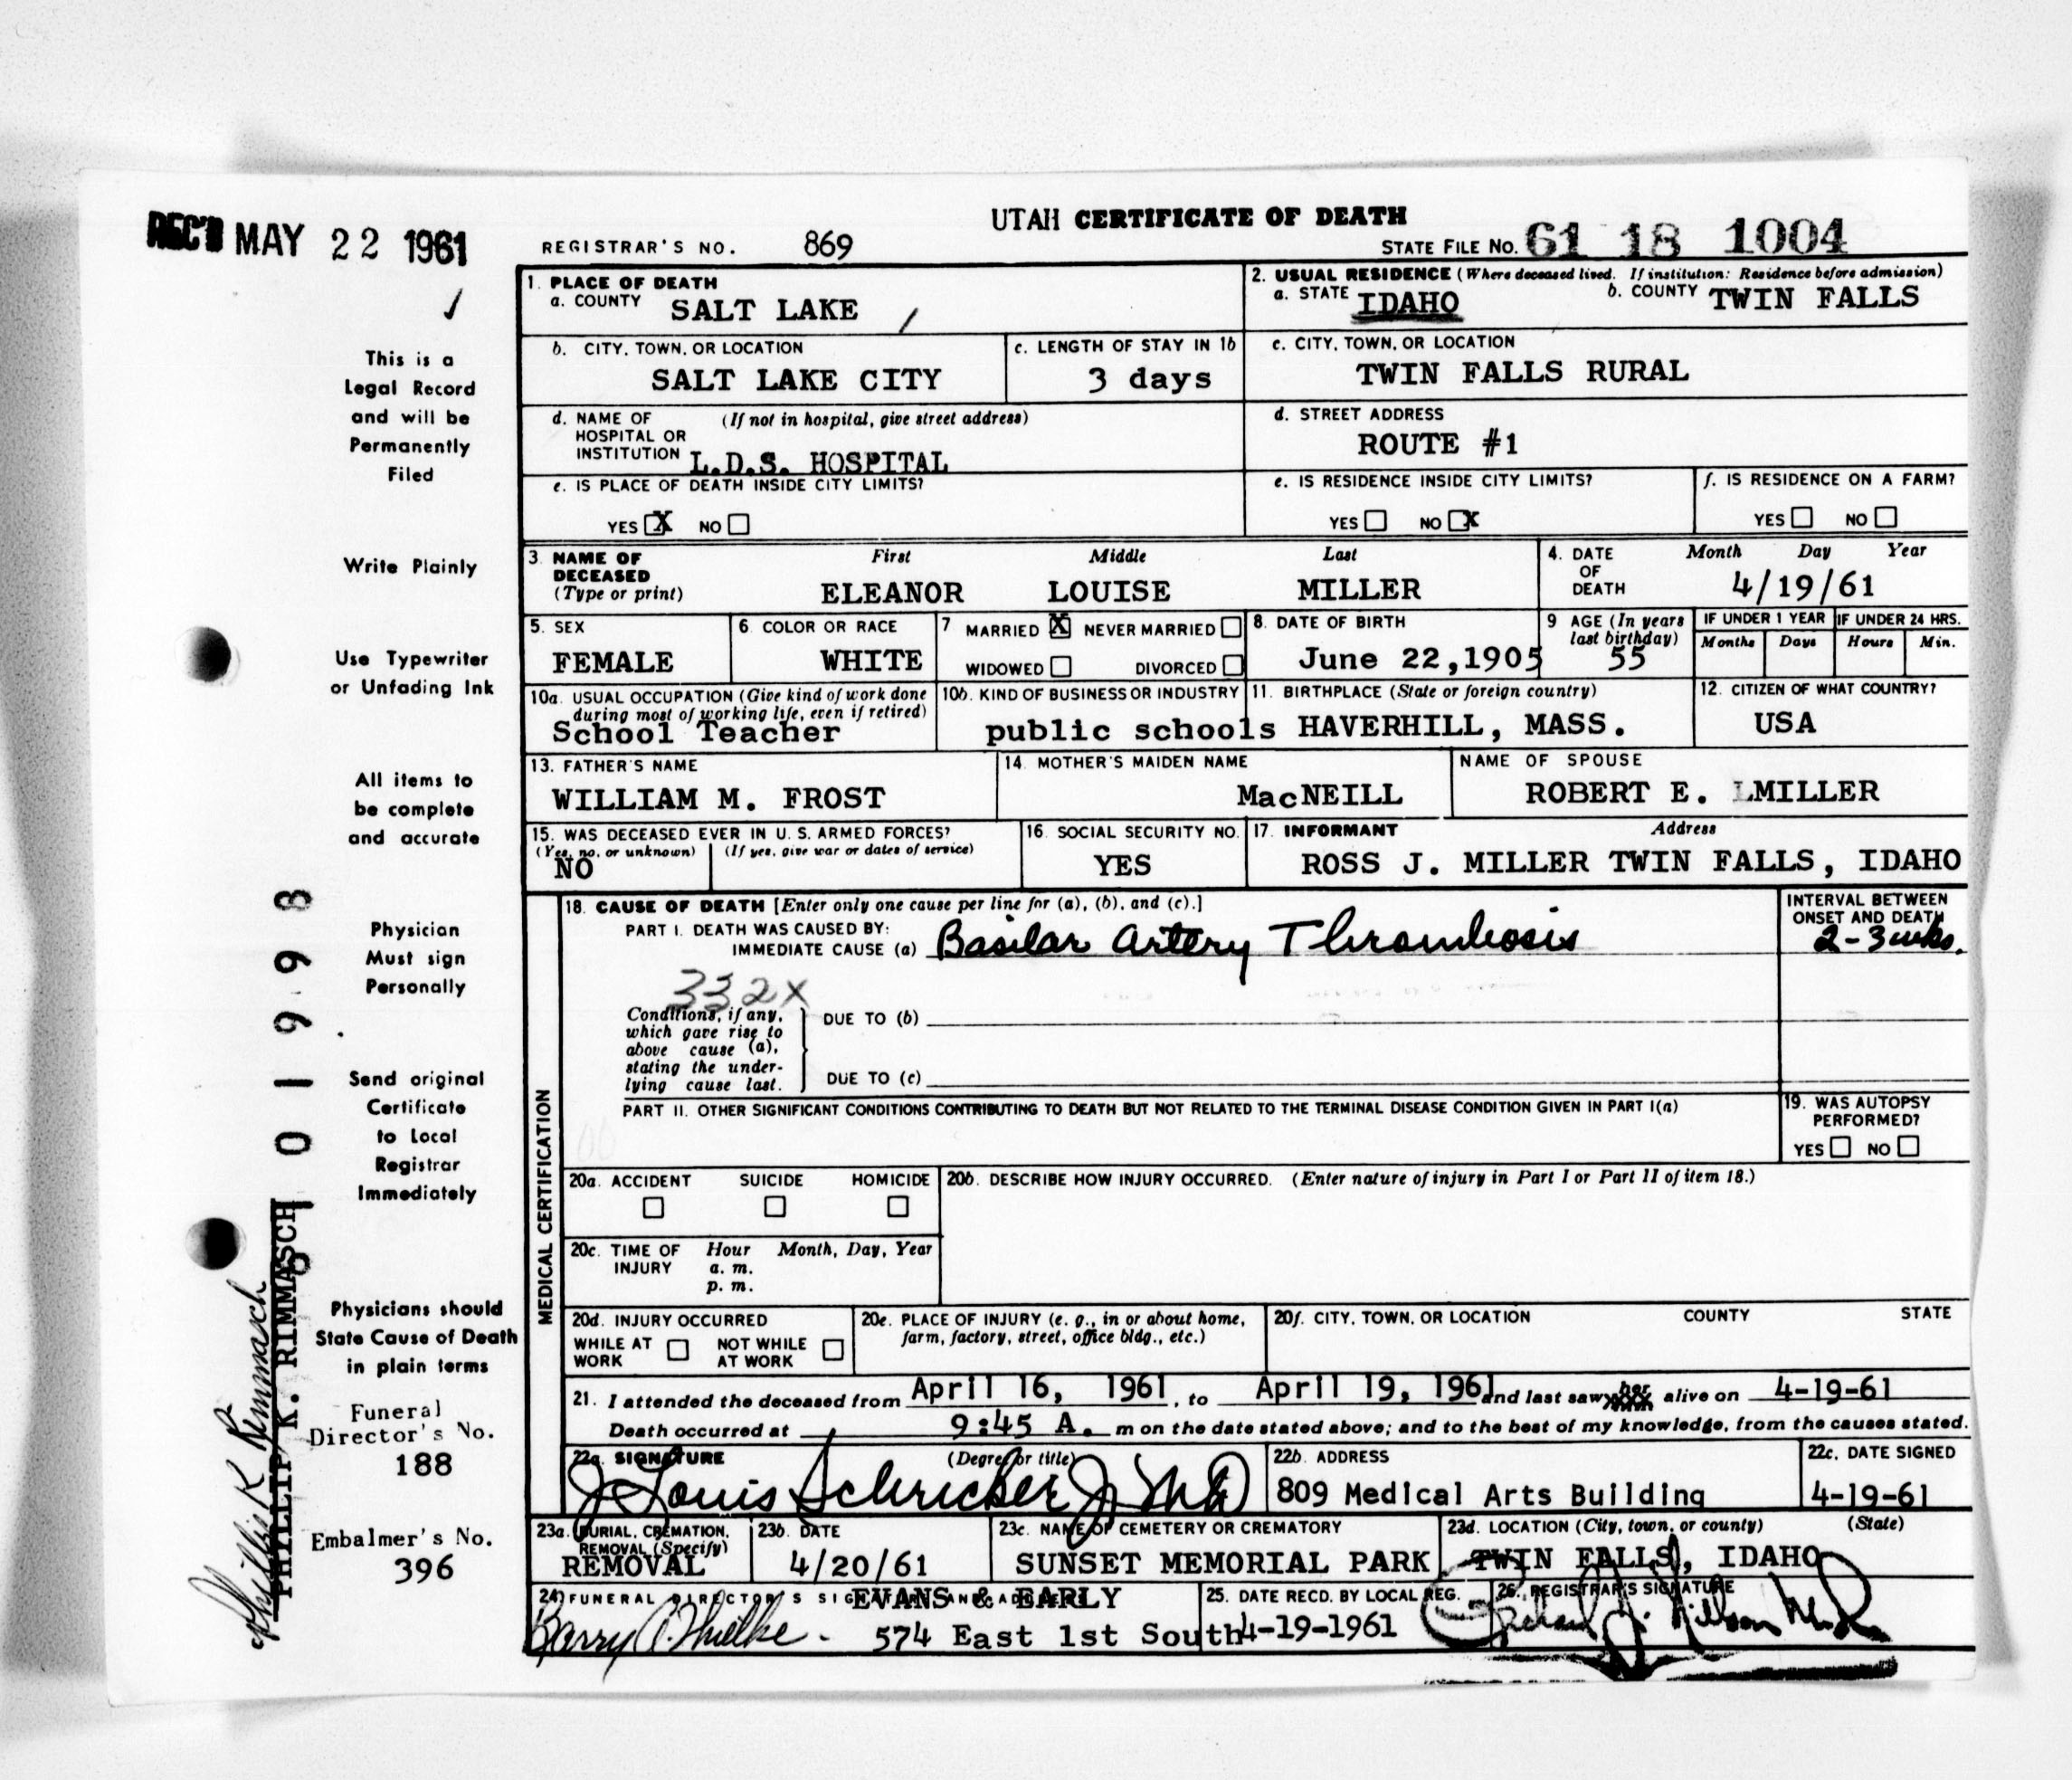 REC'D MAY 22 1961
UTAH CERTIFICATE OF DEATH
REGISTRAR'S NO. 869
STATE FILE NO. 61 18 1004
This is a
Legal Record
and will be
Permanently
Filed
Write Plainly
Use Typewriter
or Unfading Ink
All items to
be complete
and accurate
Physician
Must sign
Personally
Send original
Certificate
to Local
Registrar
Immediately
Physicians should
State Cause of Death
in plain terms
Funeral
Director's No.
188
Embalmer's No.
396
PHILLIP K. RIMMASCH
1. PLACE OF DEATH
a. COUNTY SALT LAKE
2. USUAL RESIDENCE (Where deceased lived. If institution: Residence before admission)
a. STATE IDAHO b. COUNTY TWIN FALLS
b. CITY, TOWN, OR LOCATION
SALT LAKE CITY
c. LENGTH OF STAY IN 1b
3 days
c. CITY, TOWN, OR LOCATION
TWIN FALLS RURAL
d. NAME OF (If not in hospital, give street address)
HOSPITAL OR
INSTITUTION L.D.S. HOSPITAL
d. STREET ADDRESS
ROUTE #1
e. IS PLACE OF DEATH INSIDE CITY LIMITS?
YES X NO
e. IS RESIDENCE INSIDE CITY LIMITS?
YES NO X
f. IS RESIDENCE ON A FARM?
YES NO
3. NAME OF DECEASED (Type or print)
First Middle Last
ELEANOR LOUISE MILLER
4. DATE OF DEATH Month Day Year
4/19/61
5. SEX
FEMALE
6. COLOR OR RACE
WHITE
7 MARRIED X NEVER MARRIED
WIDOWED DIVORCED
8. DATE OF BIRTH
June 22,1905
9 AGE (In years
last birthday)
55
IF UNDER 1 YEAR IF UNDER 24 HRS.
Months Days Hours Min.
10a. USUAL OCCUPATION (Give kind of work done
during most of working life, even if retired)
School Teacher
10b. KIND OF BUSINESS OR INDUSTRY
public schools
11. BIRTHPLACE (State or foreign country)
HAVERHILL, MASS.
12. CITIZEN OF WHAT COUNTRY?
USA
13. FATHER'S NAME
WILLIAM M. FROST
14. MOTHER'S MAIDEN NAME
MacNEILL
NAME OF SPOUSE
ROBERT E. MILLER
15. WAS DECEASED EVER IN U. S. ARMED FORCES?
(Yes, no, or unknown) (If yes, give war or dates of service)
NO
16. SOCIAL SECURITY NO.
YES
17. INFORMANT Address
ROSS J. MILLER TWIN FALLS, IDAHO
MEDICAL CERTIFICATION
18. CAUSE OF DEATH [Enter only one cause per line for (a), (b), and (c).]
PART I. DEATH WAS CAUSED BY:
IMMEDIATE CAUSE (a) Basilar Artery Thrombosis
INTERVAL BETWEEN
ONSET AND DEATH
2-3 wks.
332X
Conditions, if any,
which gave rise to
above cause (a),
stating the under-
lying cause last.
DUE TO (b)
DUE TO (c)
PART II. OTHER SIGNIFICANT CONDITIONS CONTRIBUTING TO DEATH BUT NOT RELATED TO THE TERMINAL DISEASE CONDITION GIVEN IN PART I(a)
19. WAS AUTOPSY
PERFORMED?
YES NO
20a. ACCIDENT SUICIDE HOMICIDE
20b. DESCRIBE HOW INJURY OCCURRED. (Enter nature of injury in Part I or Part II of item 18.)
20c. TIME OF INJURY Hour Month, Day, Year
a. m.
p. m.
20d. INJURY OCCURRED
WHILE AT WORK NOT WHILE AT WORK
20e. PLACE OF INJURY (e. g., in or about home,
farm, factory, street, office bldg., etc.)
20f. CITY, TOWN, OR LOCATION COUNTY STATE
21. I attended the deceased from April 16, 1961, to April 19, 1961 and last saw her alive on 4-19-61
Death occurred at 9:45 A. m on the date stated above; and to the best of my knowledge, from the causes stated.
22a. SIGNATURE (Degree or title)
J Louis Schricker Jr MD
22b. ADDRESS
809 Medical Arts Building
22c. DATE SIGNED
4-19-61
23a. BURIAL, CREMATION,
REMOVAL (Specify)
REMOVAL
23b. DATE
4/20/61
23c. NAME OF CEMETERY OR CREMATORY
SUNSET MEMORIAL PARK
23d. LOCATION (City, town, or county) (State)
TWIN FALLS, IDAHO
24. FUNERAL DIRECTOR'S SIGNATURE AND ADDRESS
EVANS & EARLY
574 East 1st South
25. DATE RECD. BY LOCAL REG.
4-19-1961
26. REGISTRAR'S SIGNATURE
Phillip K Rimmasch